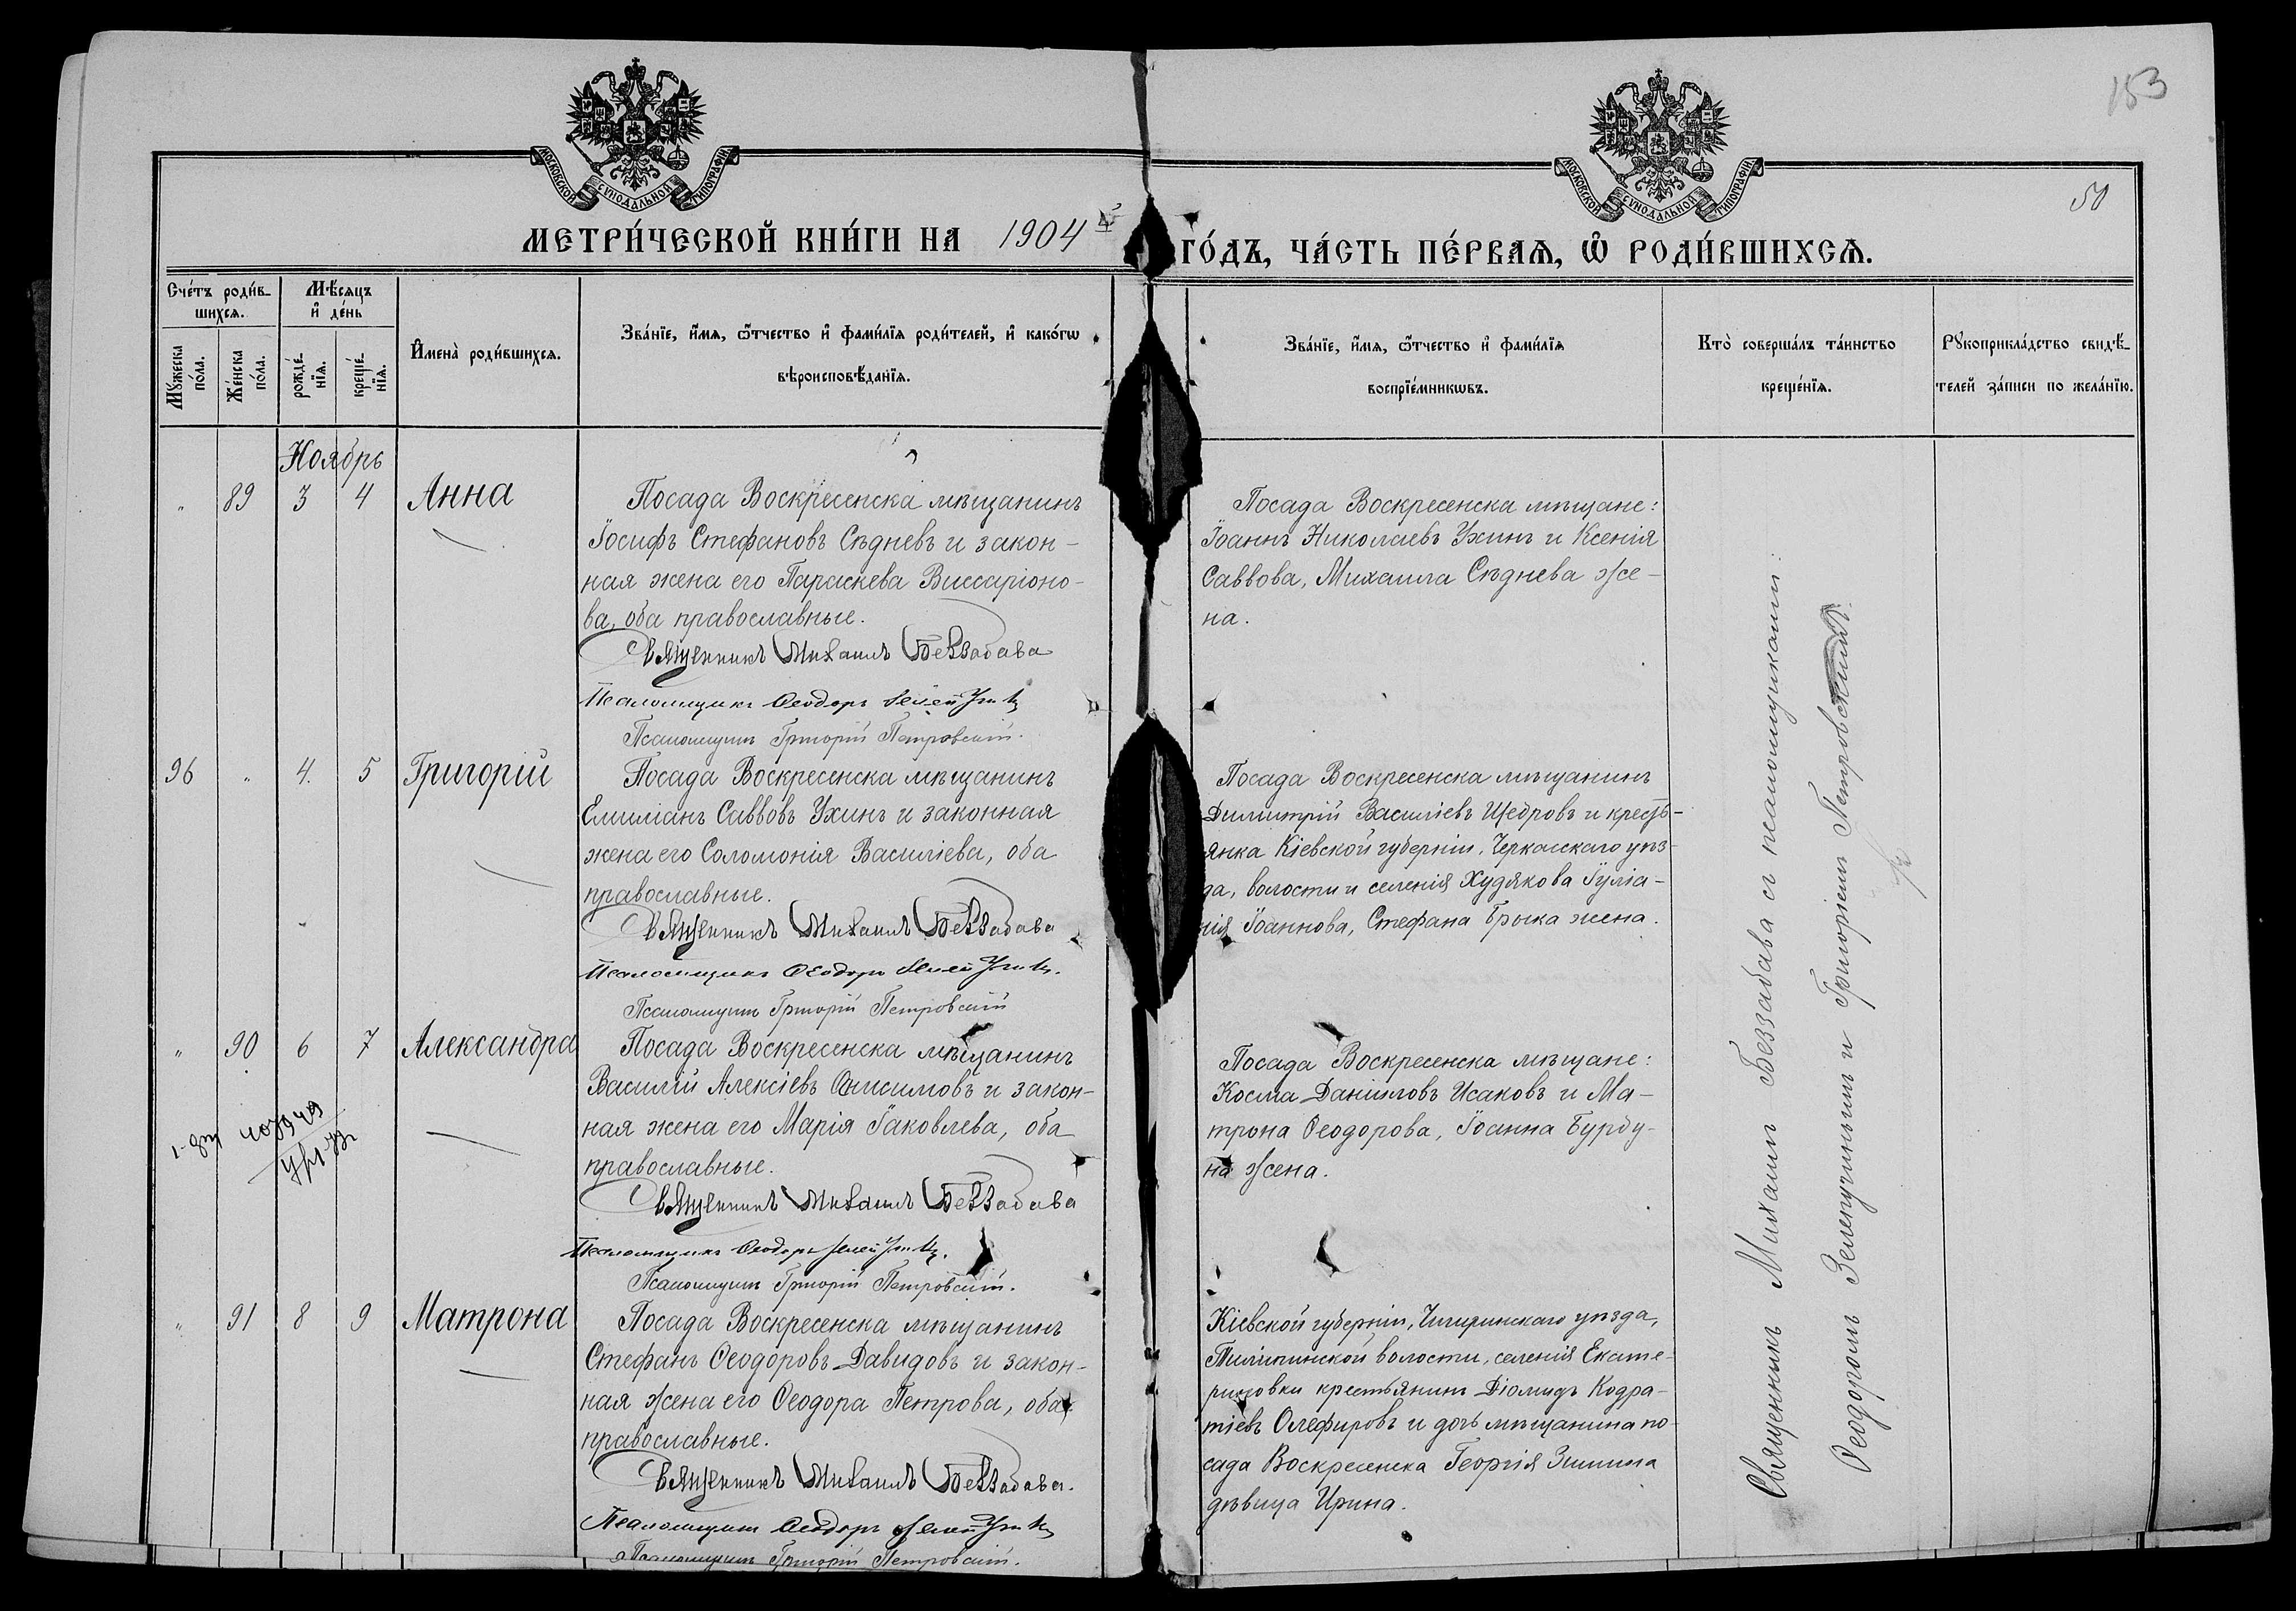 153
50
МОСКОВСКОЙ СѴНОДАЛЬНОЙ ТИПОГРАФІИ
МОСКОВСКОЙ СѴНОДАЛЬНОЙ ТИПОГРАФІИ
МЕТРИ́ЧЕСКОЙ КНИ́ГИ НА 1904 ГО́ДЪ, ЧА́СТЬ ПЕ́РВАѦ, Ѡ҆ РОДИ́ВШИХСѦ.
Сче́тъ роди́в-
шихсѧ.
Мꙋ́жеска по́ла.
Же́нска по́ла.
Мѣ́сѧцъ
и҆ де́нь
рожде́-нїѧ.
креще́-нїѧ.
И҆мена̀ роди́вшихсѧ.
Зва́нїе, и҆́мѧ, ѻ҆́тчество и҆ фами́лїѧ роди́телей, и҆ како́гѡ
вѣроисповѣ́данїѧ.
Зва́нїе, и҆́мѧ, ѻ҆́тчество и҆ фами́лїѧ
воспрїе́мникѡвъ.
Кто̀ соверша́лъ та́инство
креще́нїѧ.
Рꙋкоприкла́дство свидѣ́-
телей за́писи по жела́нїю.
Ноябрь
" 89 3 4 Анна
Посада Воскресенска мѣщанинъ
Іосифъ Стефановъ Сѣдневъ и закон-
ная жена его Параскева Виссаріоно-
ва, оба православные.
Священникъ Михаилъ Беззабава
Псаломщикъ Ѳеодоръ
Псаломщикъ Григорій Петровскій.
Посада Воскресенска мѣщане:
Іоаннъ Николаевъ Ухинъ и Ксенія
Саввова, Михаила Сѣднева же-
на.
96 " 4. 5 Григорій
Посада Воскресенска мѣщанинъ
Емиліанъ Саввовъ Ухинъ и законная
жена его Соломонія Василіева, оба
православные.
Священникъ Михаилъ Беззабава
Псаломщикъ Ѳеодоръ
Псаломщикъ Григорій Петровскій
Посада Воскресенска мѣщанинъ
Димитрій Василіевъ Щедровъ и кресть-
янка Кіевской губерніи, Черкасскаго уѣз-
да, волости и селенія Худякова Іуліа-
нія Іоаннова, Стефана Брыка жена.
" 90 6 7 Александра
Посада Воскресенска мѣщанинъ
Василій Алексіевъ Анисимовъ и закон-
ная жена его Марія Іаковлева, оба
православные.
Священникъ Михаилъ Беззабава
Псаломщикъ Ѳеодоръ
Псаломщикъ Григорій Петровскій.
Посада Воскресенска мѣщане:
Косма Даниловъ Исаковъ и Ма-
трона Ѳеодорова, Іоанна Бурду-
на жена.
" 91 8 9 Матрона
Посада Воскресенска мѣщанинъ
Стефанъ Ѳеодоровъ Давидовъ и закон-
ная жена его Ѳеодора Петрова, оба
православные.
Священникъ Михаилъ Беззабава.
Псаломщикъ Ѳеодоръ
Псаломщикъ Григорій Петровскій.
Кіевской губерніи, Чигиринскаго уѣзда,
волости, селенія Екате-
риновки крестьянинъ Діомидъ Кодра-
тіевъ Олефировъ и дочь мѣщанина по-
сада Воскресенска Георгія Зимина
дѣвица Ирина.
Священникъ Михаилъ Беззабава съ псаломщиками:
Ѳеодоромъ и Григоріемъ Петровскимъ.